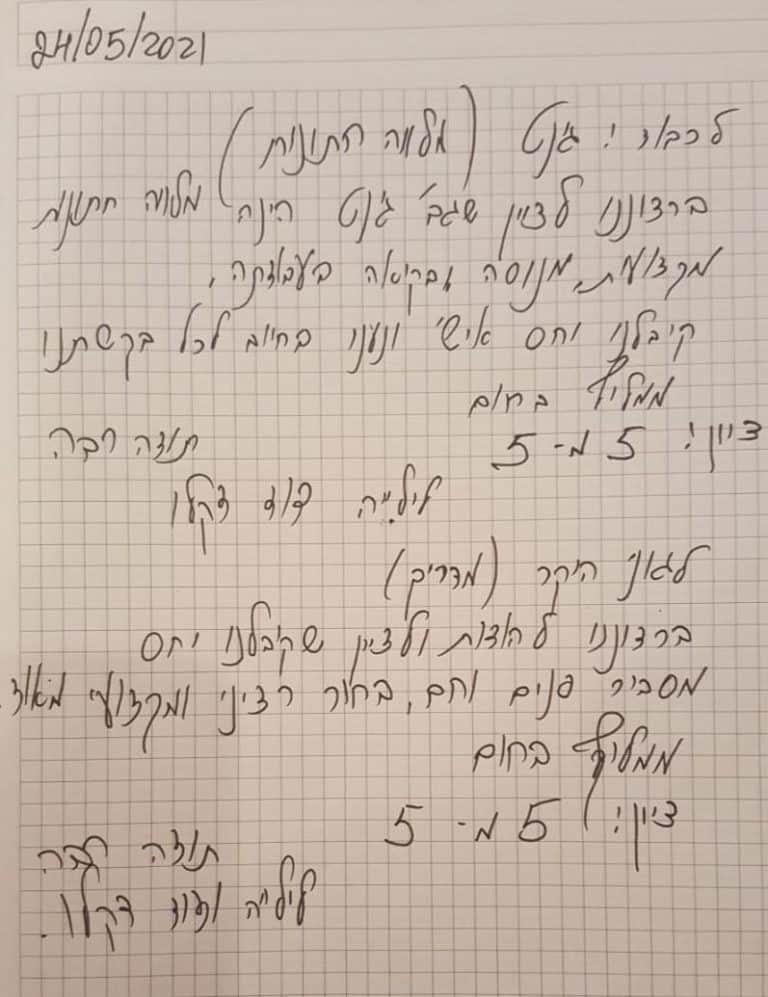 24/05/2021
לכבוד: ג'נט (מלווה חתונות)
ברצוננו לציין שגב' ג'נט הינה מלווה חתונות
מקצועית, מנוסה ובקיאה בעבודתה,
קיבלנו יחס אישי ונענו בחיוב לכל בקשתנו
ממליץ בחום
ציון: 5 מ- 5 תודה רבה
ליליה דוד דקלו
לגאני היקר (מדריך)
ברצוננו להודות ולציין שקיבלנו יחס
מסביר פנים וחם, בחור רציני ומקצועי מאוד.
ממליץ בחום
ציון: 5 מ- 5
תודה רבה
ליליה ודוד דקלו.